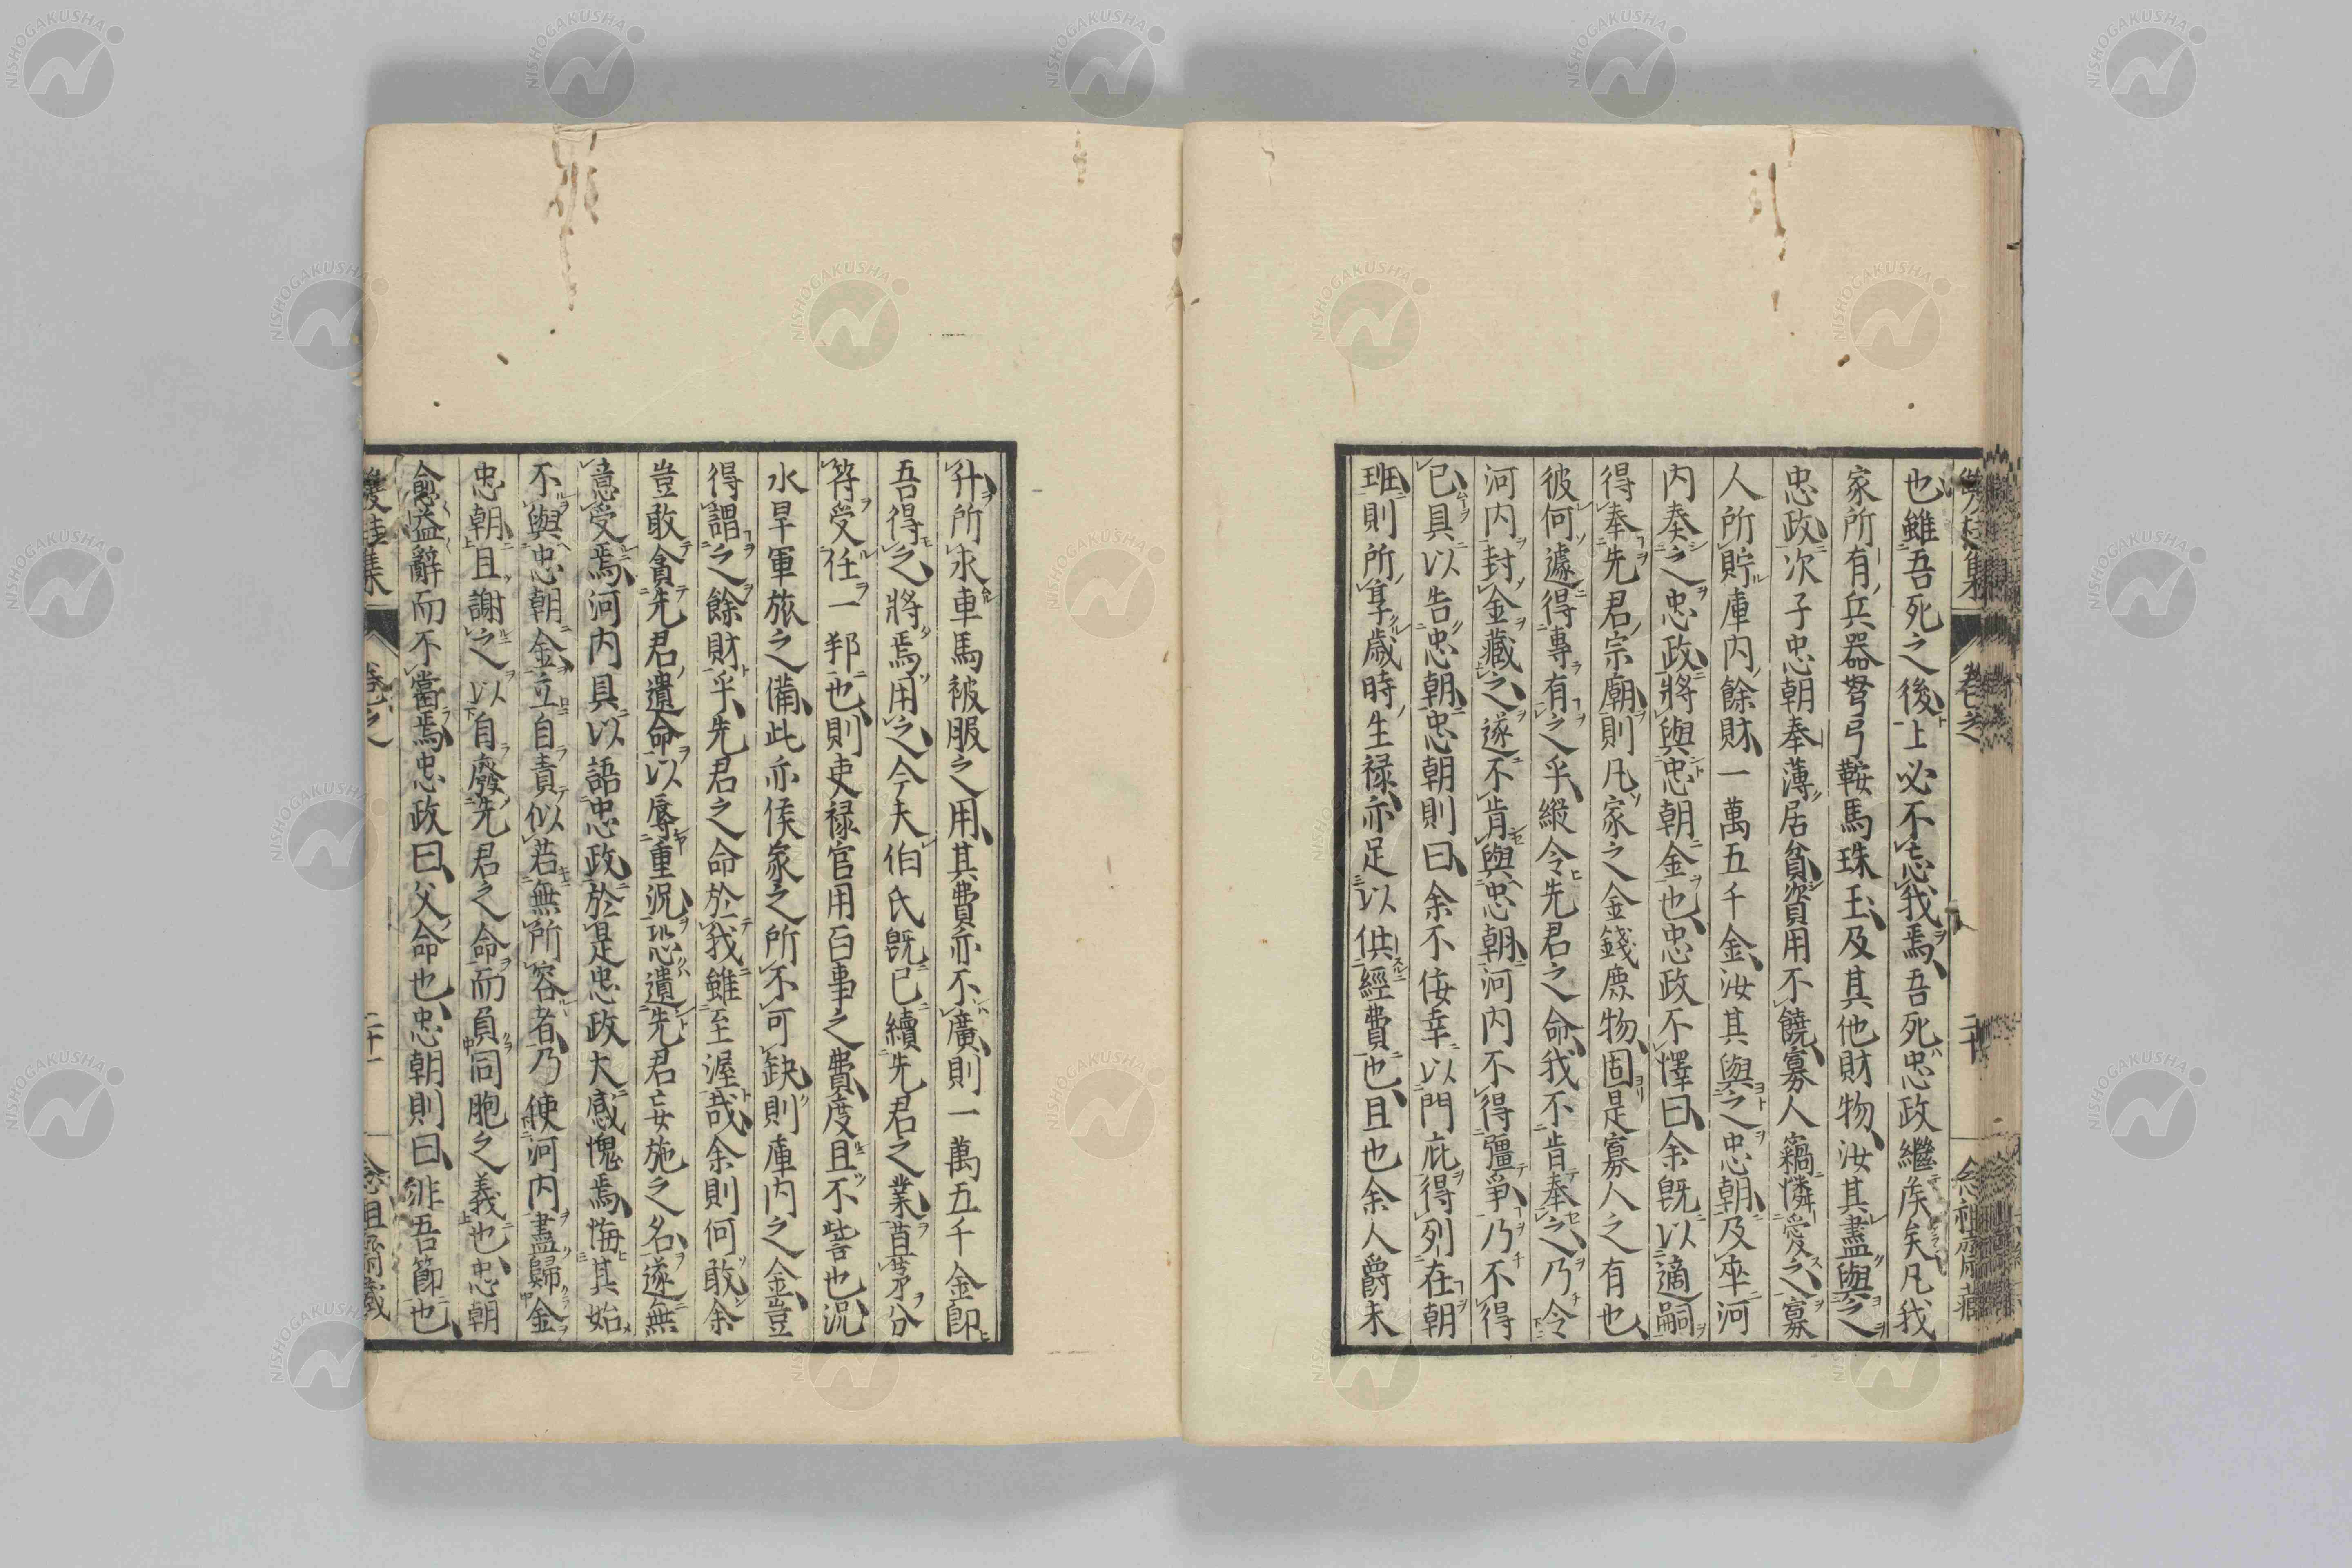 也雖吾死之後上必不忘我焉吾死忠政繼矣矣凡我
家所有兵器弩弓鞍馬珠玉及其他財物汝其盡與之
忠政次子忠朝奉薄居貧資用不饒寡人竊憐愛之寡
人所貯庫内餘財一萬五千金汝其與之忠朝及卒河
内奏之忠政將與忠朝金也忠政不懌曰余既以適嗣
得奉先君宗廟則凡家之金錢廩物固是寡人之有也
彼何遽得專有之乎縱令先君之命我不肯奉之乃令
河内封金藏之遂不肯與忠朝河内不得彊爭乃不得
已具以告忠朝忠朝則曰余不佞幸以門庇得列在朝
班則所享歲時生禄亦足以供經費也且也余人爵未
升所永車馬被服之用其費亦不廣則一萬五千金卽
吾得之將焉用之今夫伯氏既已續先君之業苴茅分
符受任一邦也則吏禄官用百事之費度且不訾也況
水旱軍旅之備此亦侯家之所不可缺則庫内之金豈
得謂之餘財乎先君之命於我雖至渥哉余則何敢余
豈敢貪先君遺命以辱重況恐遺先君妄施之名遂無
意受焉河内具以語忠政於是忠政大感愧焉悔其始
不與忠朝金立自責似若無所容者乃使河内盡歸金
忠朝且謝之以自廢先君之命而負同胞之義也忠朝
愈益辭而不當焉忠政曰父命也忠朝則曰誹吾節也